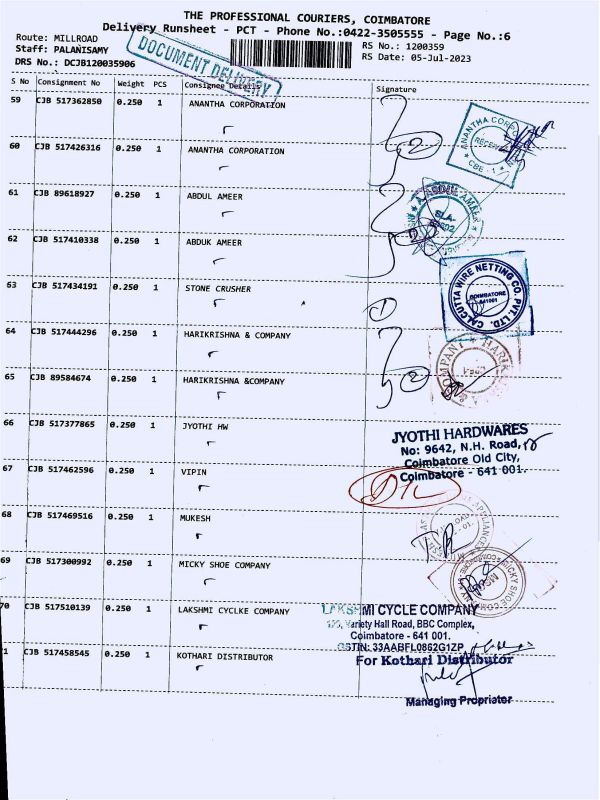 THE PROFESSIONAL COURIERS, COIMBATORE
Delivery Runsheet - PCT - Phone No.:0422-3505555 - Page No.:6
Route: MILLROAD
RS No.: 1200359
Staff: PALANISAMY
RS Date: 05-Jul-2023
DRS No.: DCJB120035906
DOCUMENT DELIVERY
S No Consignment No Weight PCS Consignee Details Signature
59 CJB 517362850 0.250 1 ANANTHA CORPORATION
60 CJB 517426316 0.250 1 ANANTHA CORPORATION
2
61 CJB 89618927 0.250 1 ABDUL AMEER
62 CJB 517410338 0.250 1 ABDUK AMEER
2
63 CJB 517434191 0.250 1 STONE CRUSHER
1
CALCUTTA WIRE NETTING CO. PVT. LTD.
COIMBATORE
641001
64 CJB 517444296 0.250 1 HARIKRISHNA & COMPANY
65 CJB 89584674 0.250 1 HARIKRISHNA &COMPANY
2
66 CJB 517377865 0.250 1 JYOTHI HW
JYOTHI HARDWARES
No: 9642, N.H. Road,
Coimbatore Old City,
Coimbatore - 641 001.
67 CJB 517462596 0.250 1 VIPIN
68 CJB 517469516 0.250 1 MUKESH
69 CJB 517300992 0.250 1 MICKY SHOE COMPANY
MICKY SHOE COMPANY
70 CJB 517510139 0.250 1 LAKSHMI CYCLKE COMPANY
LAKSHMI CYCLE COMPANY
Variety Hall Road, BBC Complex,
Coimbatore - 641 001.
GSTIN: 33AABFL0862G1ZP
1 CJB 517458545 0.250 1 KOTHARI DISTRIBUTOR
For Kothari Distributor
Managing Propriator